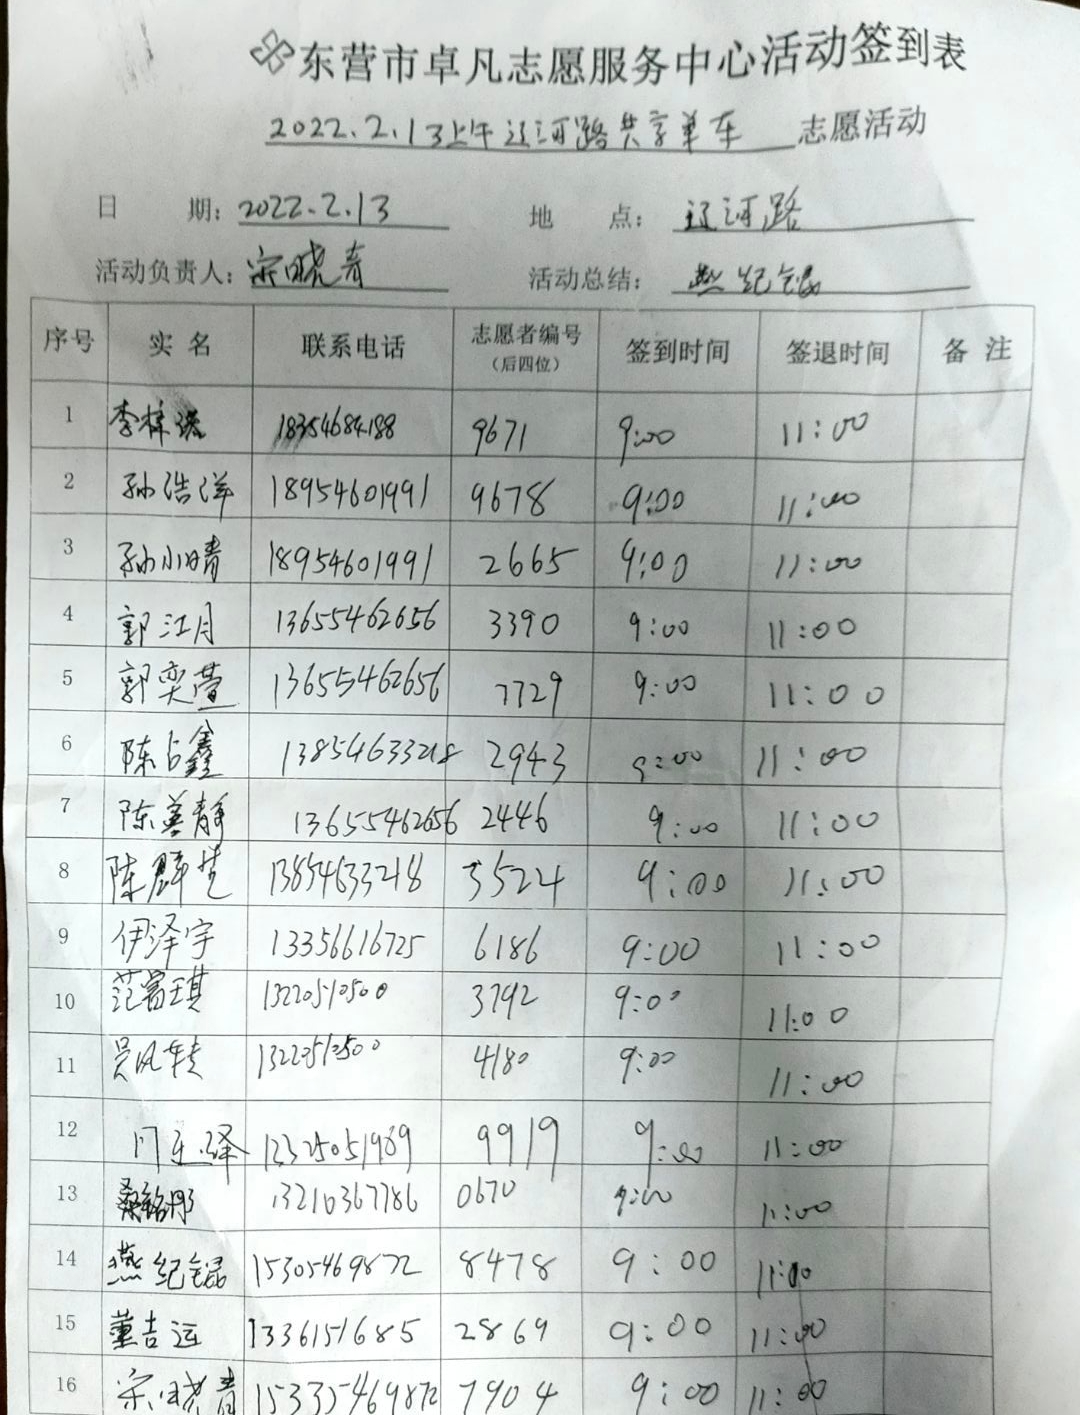 东营市卓凡志愿服务中心活动签到表
2022.2.13上午辽河路共享单车 志愿活动
日 期: 2022.2.13 地 点: 辽河路
活动负责人: 宋晓青 活动总结: 燕纪锟
序号 实名 联系电话 志愿者编号 (后四位) 签到时间 签退时间 备注
1 李梓 18354684188 9671 9:00 11:00
2 孙浩洋 18954601991 9678 9:00 11:00
3 孙小晴 18954601991 2665 9:00 11:00
4 郭江月 13655462656 3390 9:00 11:00
5 郭奕萱 13655462656 7729 9:00 11:00
6 陈占鑫 13854633218 2943 9:00 11:00
7 陈美静 13655462656 2446 9:00 11:00
8 陈群芝 13854633218 3524 9:00 11:00
9 伊泽宇 13356616725 6186 9:00 11:00
10 范富琪 13220510500 3792 9:00 11:00
11 吴风 4180 9:00 11:00
12 门 绎 9919 9:00 11:00
13 桑铭 13210367786 0670 9:00 11:00
14 燕纪锟 15305469872 8478 9:00 11:00
15 董吉运 13361511685 2869 9:00 11:00
16 宋晓青 15335469872 7904 9:00 11:00